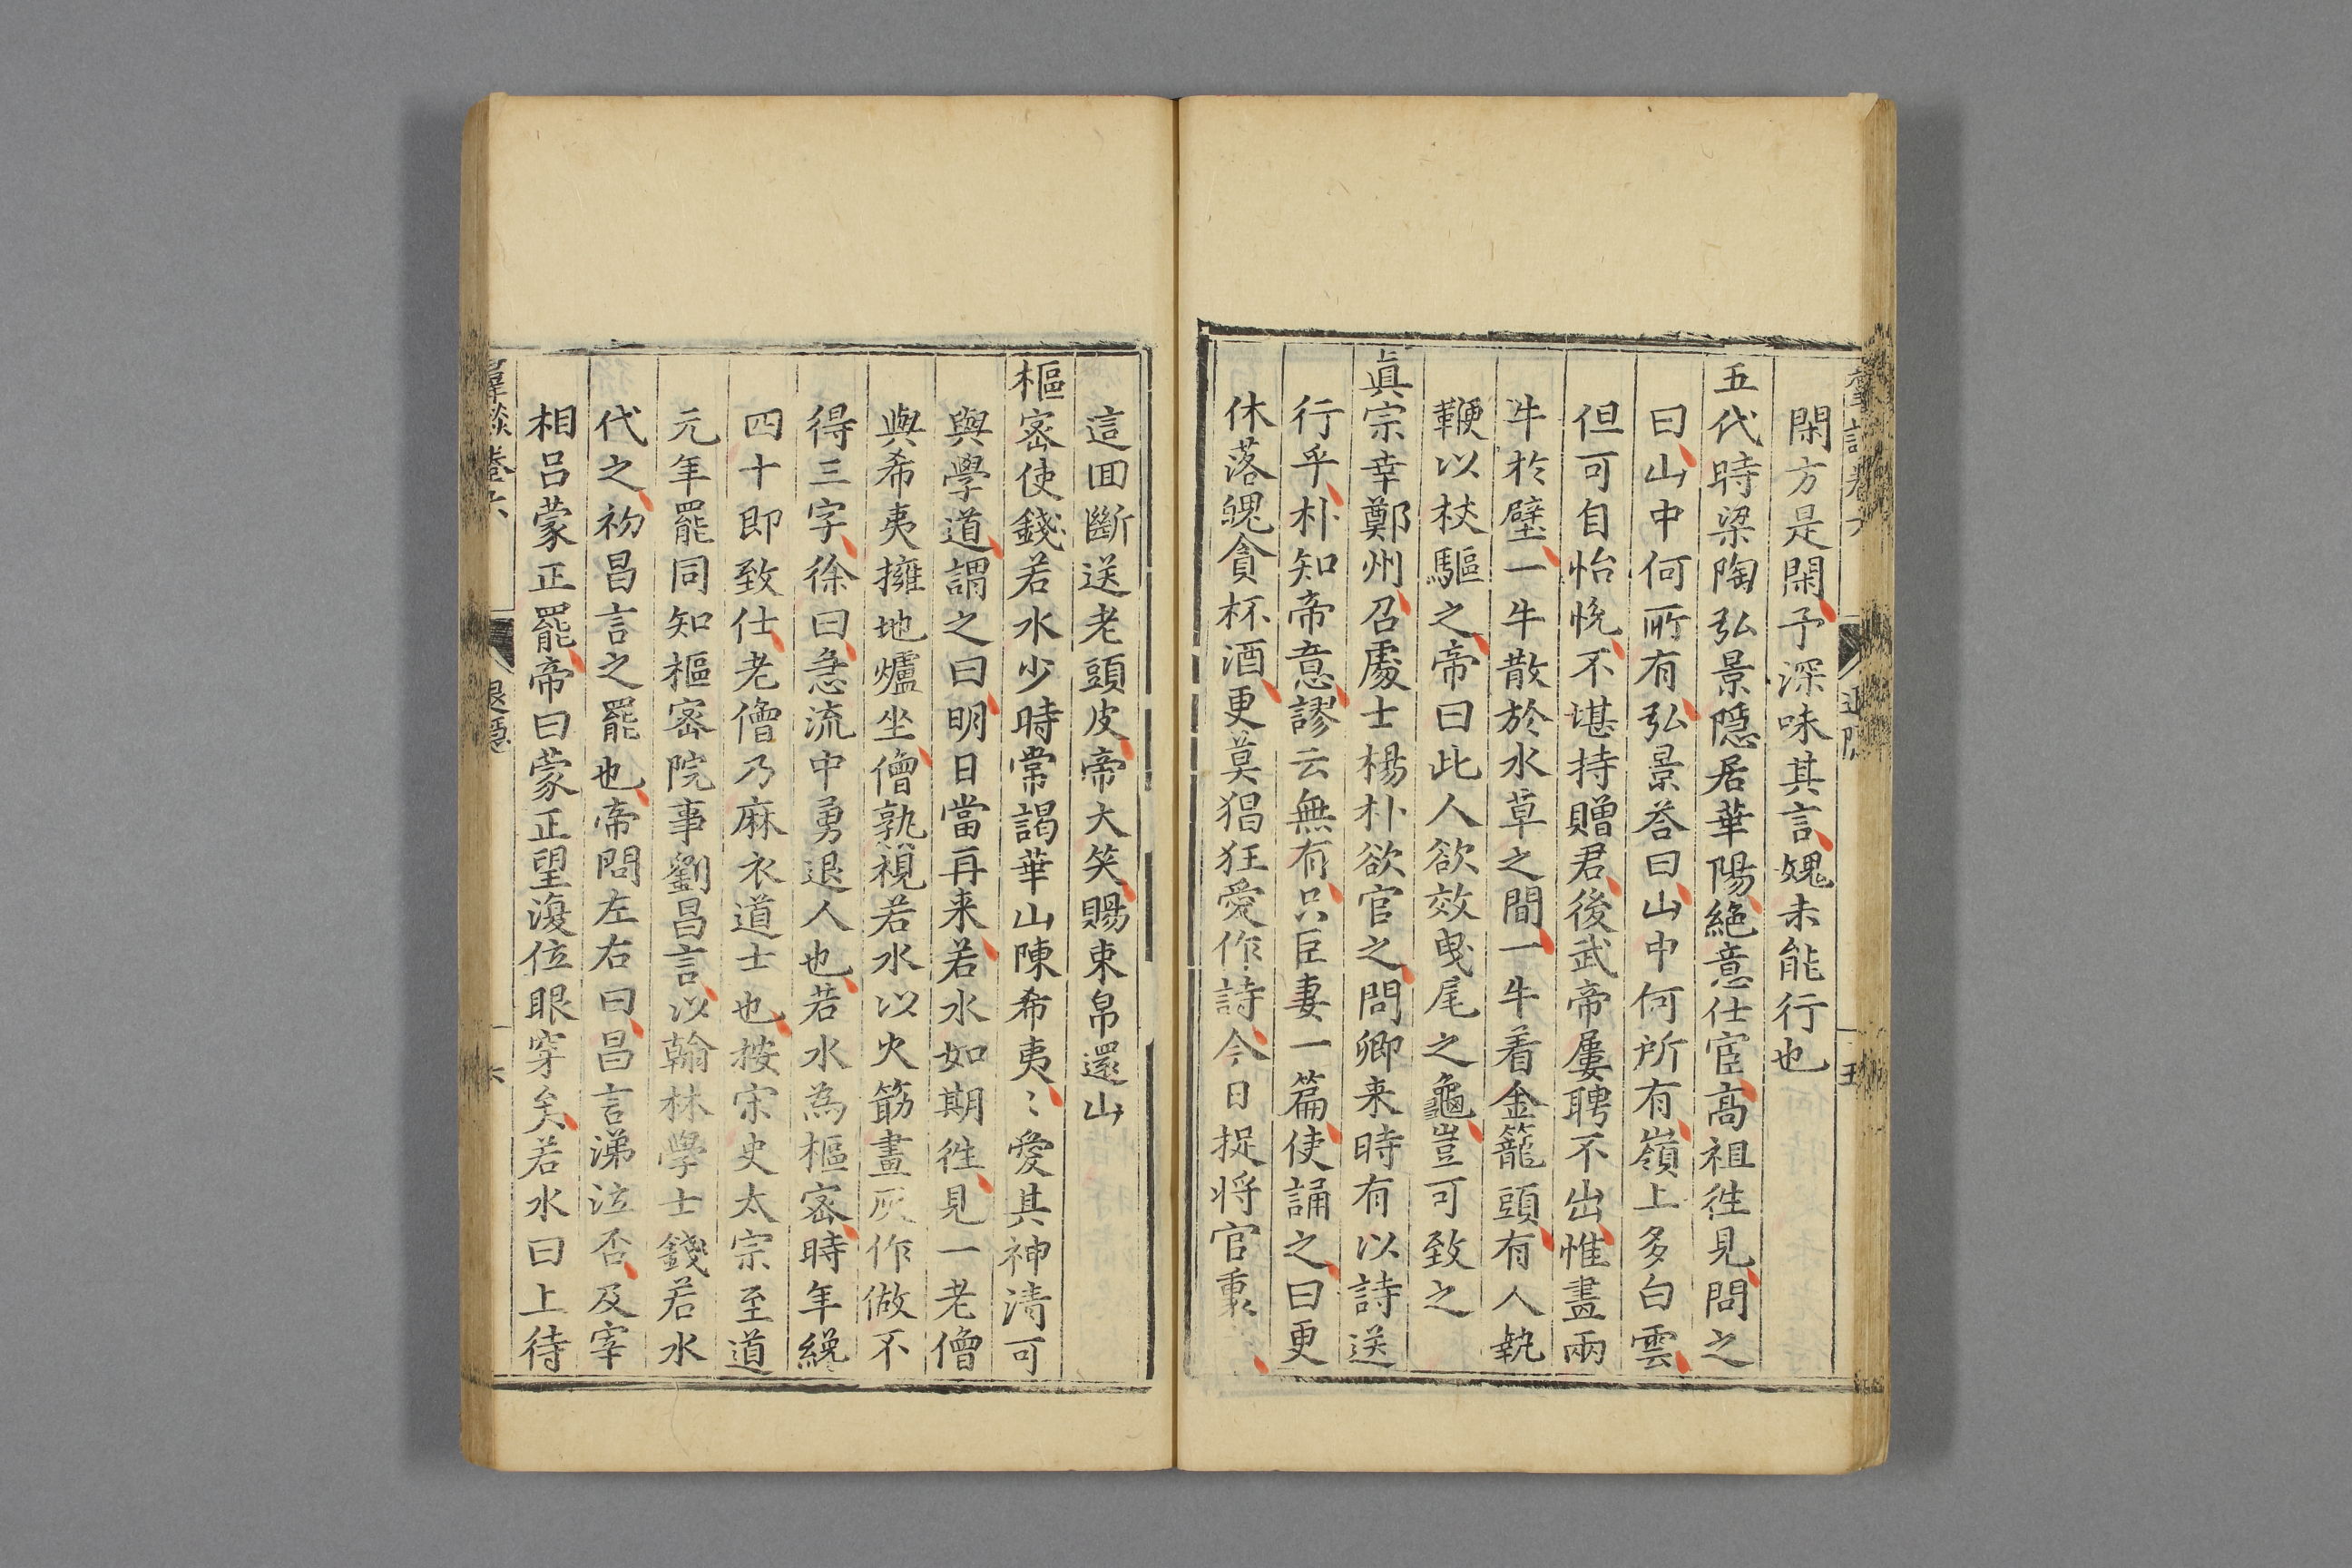 閑方是閑予深味其言媿未能行也
五代時梁陶弘景隱居華陽絶意仕宦高祖徃見問之
曰山中何所有弘景荅曰山中何所有嶺上多白雲
但可自怡悅不堪持贈君後武帝屢聘不出惟畫兩
牛於壁一牛散於水草之間一牛着金籠頭有人執
鞭以杖驅之帝曰此人欲效曵尾之龜豈可致之
眞宗幸鄭州召處士楊朴欲官之問卿来時有以詩送
行乎朴知帝意謬云無有只臣妻一篇使誦之曰更
休落魄貪杯酒更莫猖狂愛作詩今日捉將官裏
這囬斷送老頭皮帝大笑賜束帛還山
樞密使錢若水少時常謁華山陳希夷〻愛其神清可
與學道謂之曰明日當再来若水如期徃見一老僧
與希夷擁地爐坐僧熟視若水以火筯畫灰作做不
得三字徐曰急流中勇退人也若水為樞密時年纔
四十即致仕老僧乃麻衣道士也按宋史太宗至道
元年罷同知樞密院事劉昌言以翰林學士錢若水
代之初昌言之罷也帝問左右曰昌言涕泣否及宰
相呂蒙正罷帝曰蒙正望復位眼穿矣若水曰上待
羣談卷六
退隱
六